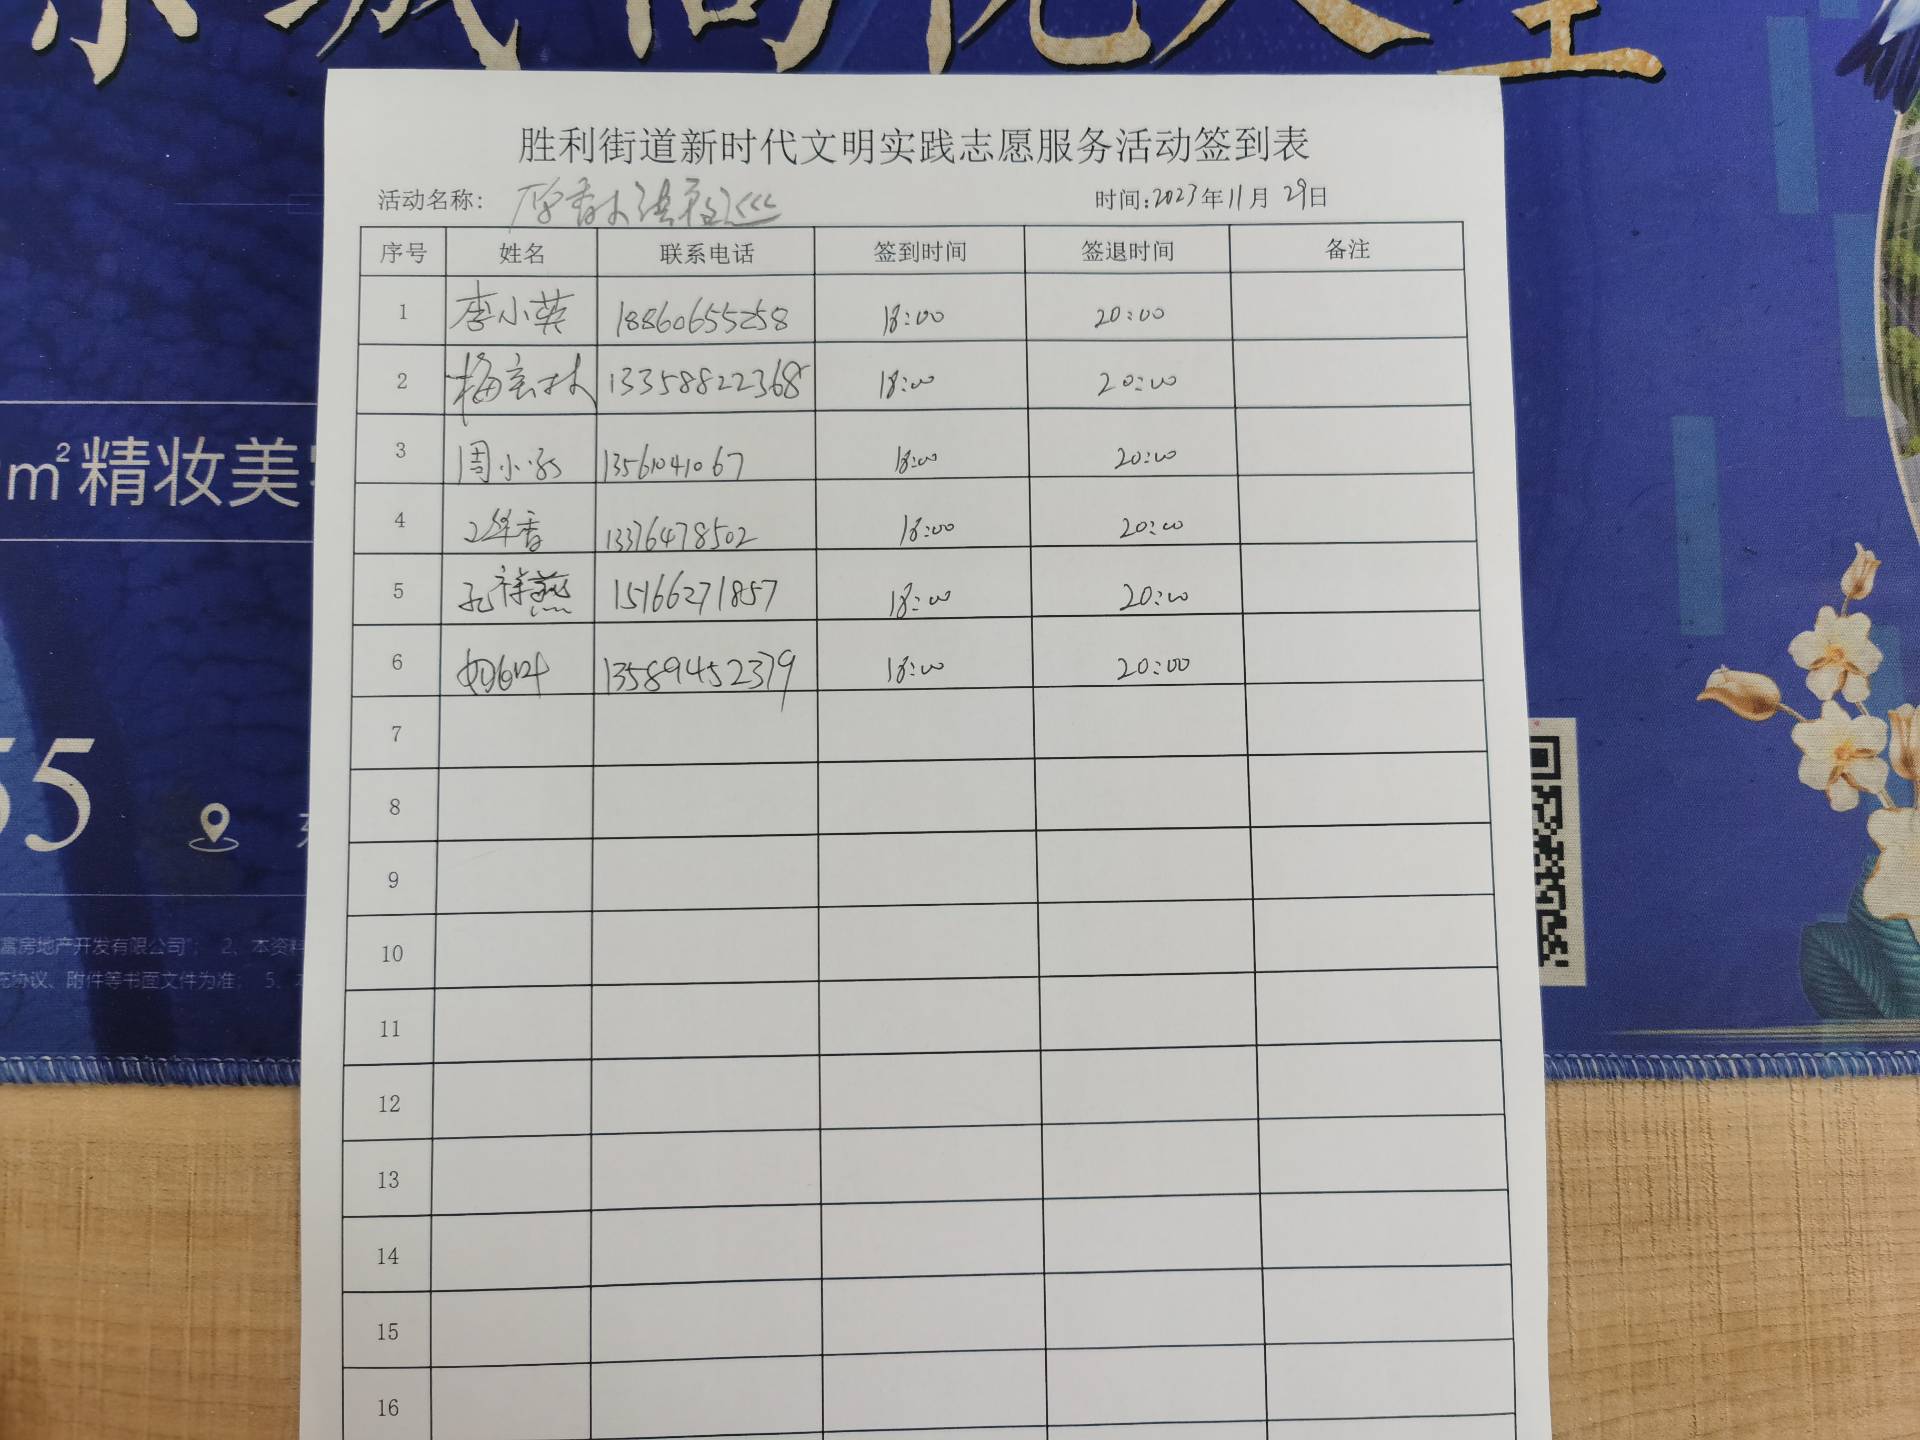 ㎡精妆美
55
富房地产开发有限公司”； 2、本资料
充协议、附件等书面文件为准； 5、本
胜利街道新时代文明实践志愿服务活动签到表
活动名称： 时间:2023年11月29日
序号 姓名 联系电话 签到时间 签退时间 备注
1 李小英 18860655258 18:00 20:00
2 梅 林 13358822368 18:00 20:00
3 周小 13561041067 18:00 20:00
4 香 13376478502 18:00 20:00
5 孔祥燕 15166271857 18:00 20:00
6 13589452379 18:00 20:00
7
8
9
10
11
12
13
14
15
16